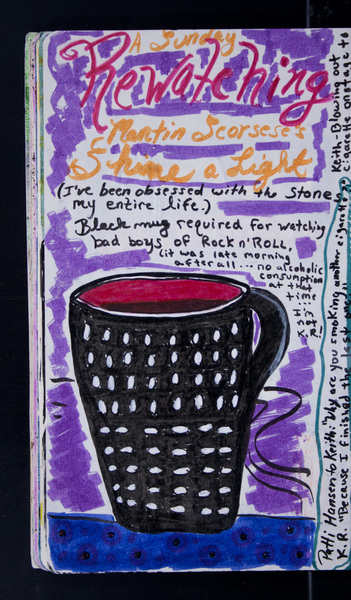 A Sunday
Rewatching
Martin Scorsese's
Shine a Light
(I've been obsessed with the Stones
my entire life.)
Black mug required for watching
"bad boys" of Rock n' Roll,
(it was late morning
after all... no alcoholic
consumption
at that
time
...
I'm
not
K.R.!
Patti Hansen to Keith: "Why are you smoking another cigarette?"
K.R. "Because I finished the last one."
Keith-Blowing out
cigarette onstage to